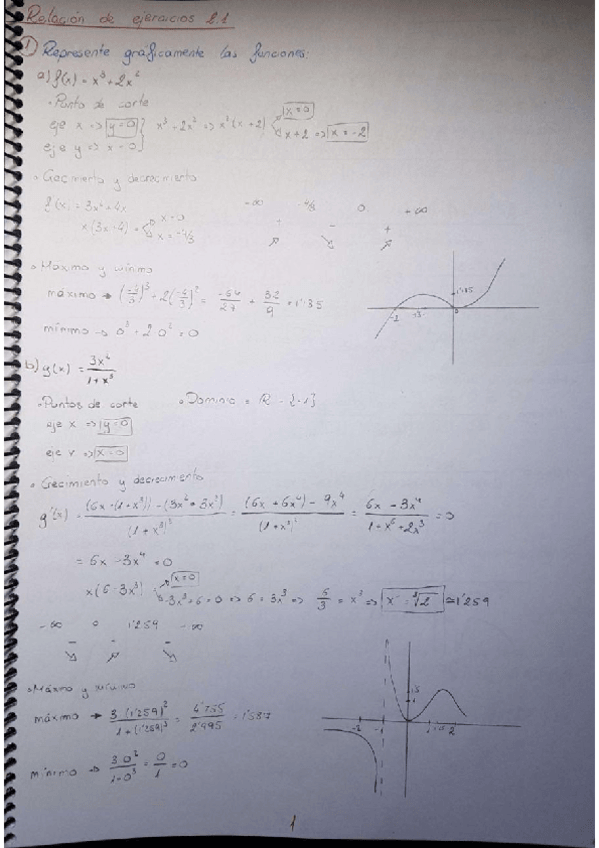 Relación de ejercicios 2.1
① Represente gráficamente las funciones:
a) f(x) = x³ + 2x²
• Punto de corte
eje x => y=0 } x³+2x² => x²(x+2) x=0
x+2 => x=-2
eje y => x=0 }
• Crecimiento y decrecimiento
f'(x) = 3x²+4x
x(3x+4) = x=0
x=-4/3
-∞ -4/3 0 +∞
+ - +
• Máximo y mínimo
máximo → (-4/3)³ + 2(-4/3)² = -64/27 + 32/9 = 1'35
mínimo → 0³+2·0² = 0
1'35
-2 0
b) g(x) = 3x²/1+x³
• Puntos de corte • Dominio = R - {-1}
eje x => y=0
eje y => x=0
• Crecimiento y decrecimiento
g'(x) = (6x·(1+x³)) - (3x²·3x²)/(1+x³)² = (6x+6x⁴) - 9x⁴/(1+x³)² = 6x - 3x⁴/1+x⁶+2x³ = 0
= 6x - 3x⁴ = 0
x(6-3x³) = x=0
-3x³+6=0 => 6=3x³ => 6/3 = x³ => x = ³√2 ≅ 1'259
-∞ 0 1'259 -∞
- - -
• Máximo y mínimo
máximo → 3·(1'259)²/1+(1'259)³ = 4'755/2'995 = 1'587
mínimo → 3·0²/1-0³ = 0/1 = 0
-2 -1 2
1